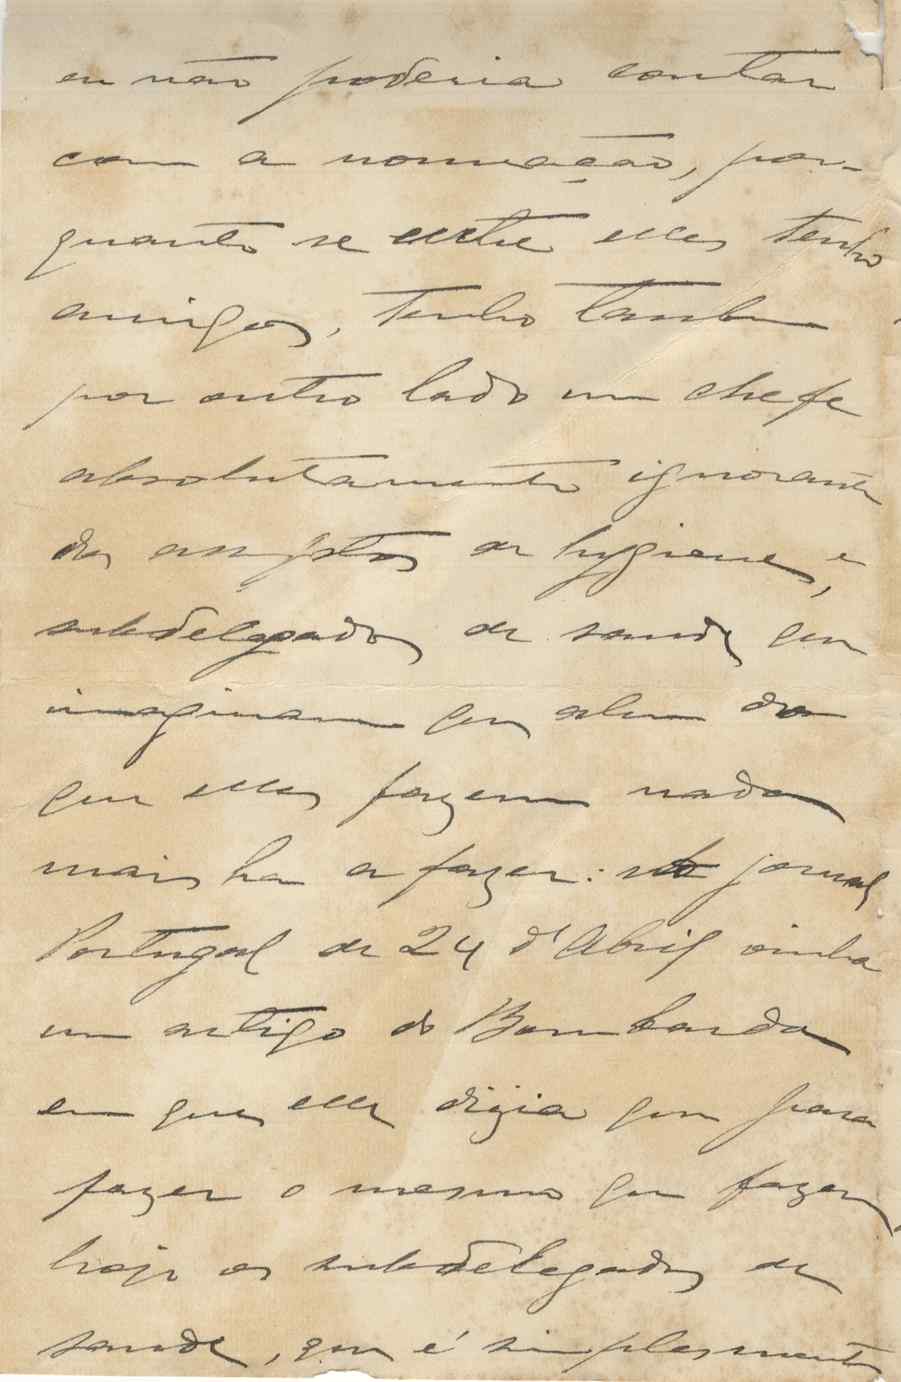 eu não poderia contar
com a nomeação, por-
quanto se entre elles tenho
amigos, tenho tambem
por outro lado um chefe
absolutamente ignorante
dos assumptos de hygiene, e
subdelegados de saude que
imaginam que alem do
que elles fazem nada
mais ha a fazer: no jornal
Portugal de 24 d'Abril vinha
um artigo do Bombarda
em que elle dizia que para
fazer o mesmo que fazem
hoje os subdelegados de
saude, que é simplesmente